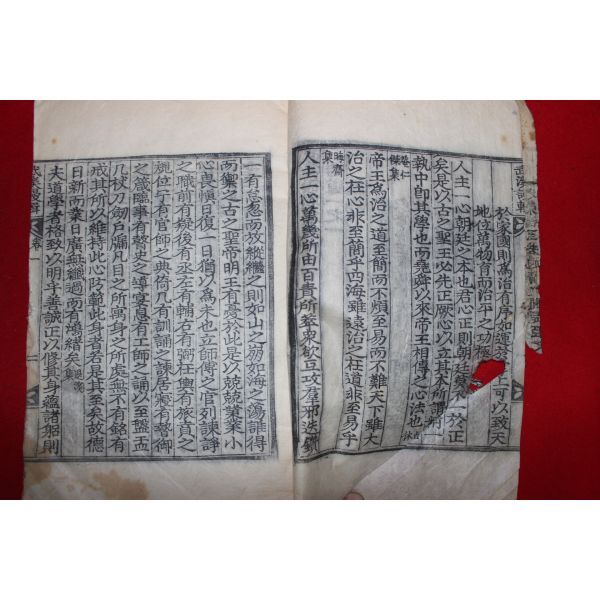 於家國則爲治有序如運
地位萬物育而治平之功極
上可以致天
人主一心朝廷之本也君心正則朝廷
於正
矣是以古之聖王必先正厥心以立其本所謂
執中卽其學也而堯舜以來帝王相傳之心法也
帝王爲治之道至簡而不煩至易而不難天下雖大
治之在心非至簡乎四海雖遠治之在道非至易乎
晦齋集
人主一心萬幾所由百責所萃衆欲互攻羣邪迭鑽
一有怠忽而放縱繼之則如山之崩如海之蕩誰得
而禦之古之聖帝明王有憂於此是以兢兢業業小
心畏愼日復一日猶以爲未也立師傅之官列諫諍
之職前有疑後有丞左有輔右有弼在輿有旅賁之
規位宁有官師之典倚几有訓誦之諫居寢有暬御
之箴臨事有瞽史之導宴居有工師之誦以至盤盂
几杖刀劒戶牖凡目之所寓身之所處無不有銘有
戒其所以維持此心防範此身者若是其至矣故德
日新而業日廣無纖過而有鴻緖矣
夫道學者格致以明乎善誠正以修其身蘊諸躬則